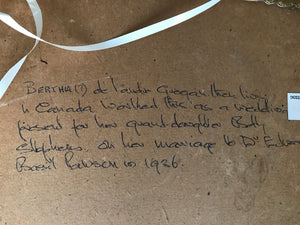 BERTHA(?) de Landre Grogan then living
in Canada worked this as a wedding
present for her grand-daughter Betty
Stephens. On her marriage to Dr
Basil in 1936.